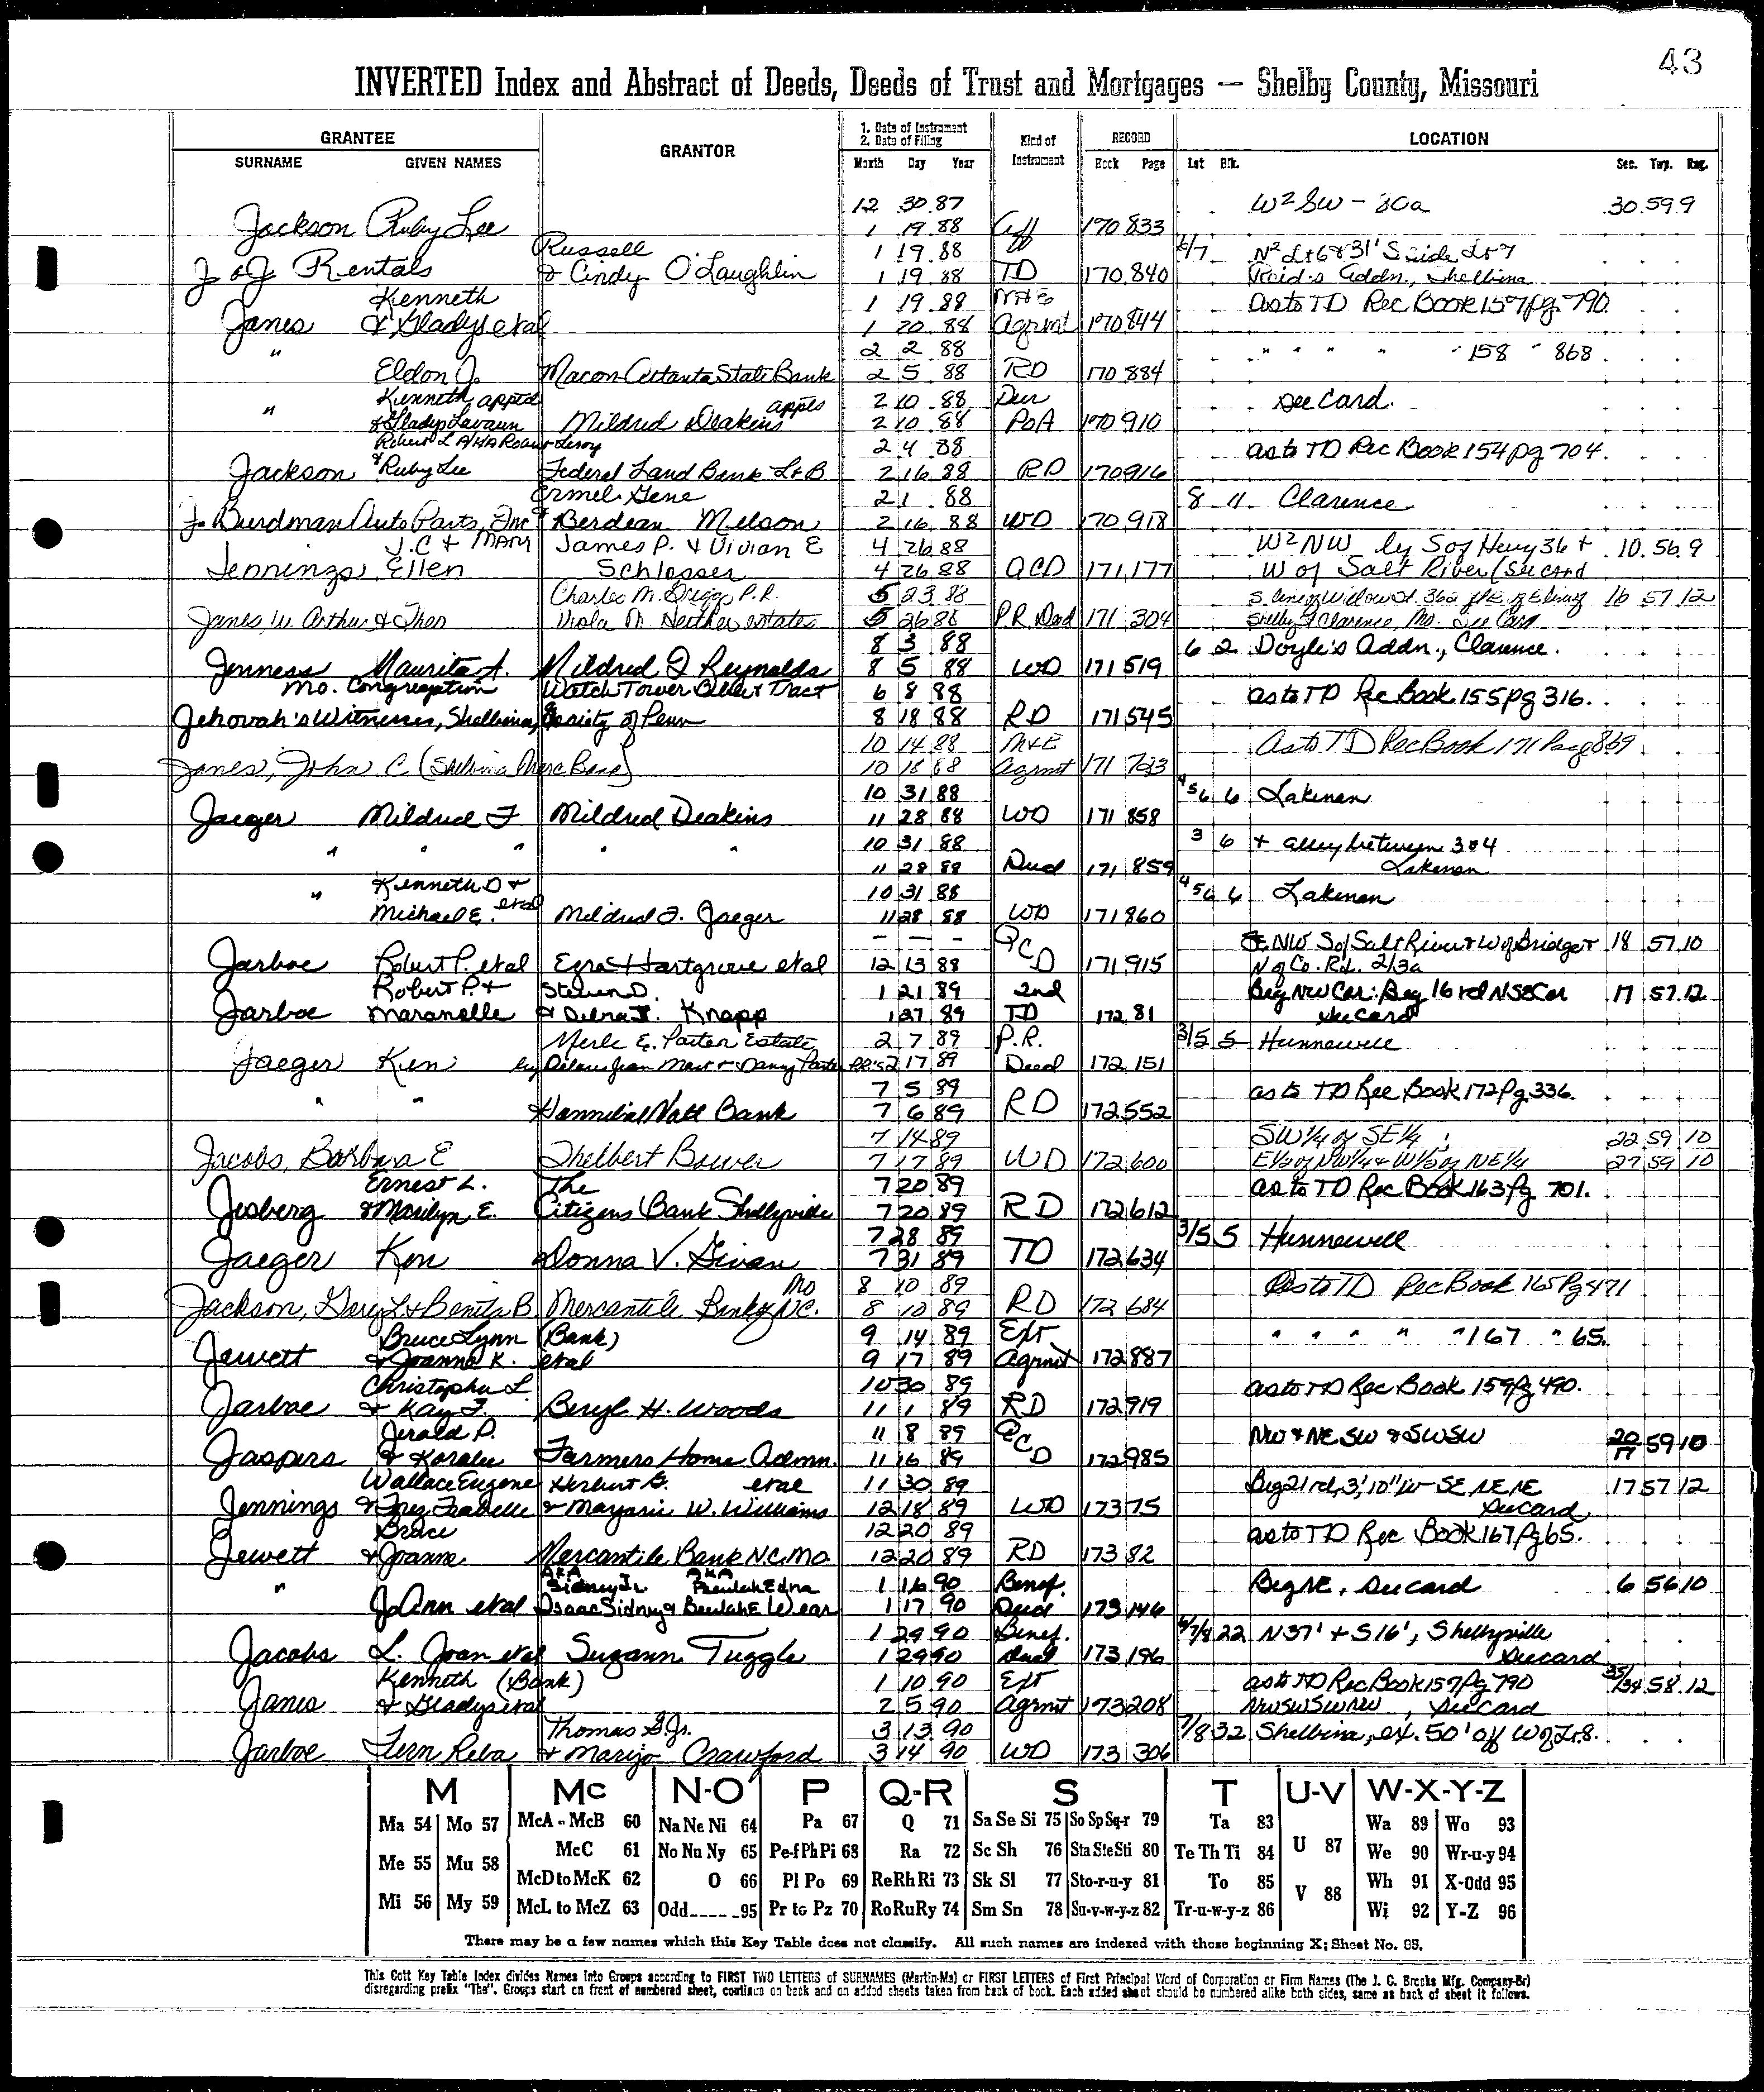 43
INVERTED Index and Abstract of Deeds, Deeds of Trust and Mortgages — Shelby County, Missouri
GRANTEE GRANTOR 1. Date of Instrument 2. Date of Filing Kind of Instrument RECORD LOCATION
SURNAME GIVEN NAMES Month Day Year Book Page Lot Blk. Sec. Twp. Rng.
12 30 87 W2 SW - 80a 30 59 9
Jackson Ruby Lee 1 19 88 Aff 170 833
Russell 1 19 88 6/7 N2 Lt 6 & 31' S side Lt 7
J & J Rentals & Cindy O'Laughlin 1 19 88 TD 170 840 Reid's Addn., Shelbina
Kenneth 1 19 88 M&E as to TD Rec Book 157 pg 790.
Janes & Gladys etal 1 20 88 Agrmt 170 844
" 2 2 88 " " " " " 158 " 868
Eldon J. Macon-Atlanta State Bank 2 5 88 RD 170 884
" Kenneth apptd appts 2 10 88 Dur See Card.
& Gladys Lavaun Mildred Deakins 2 10 88 PoA 170 910
Robert L AKA Robert Leroy 2 4 88 as to TD Rec Book 154 pg 704.
Jackson & Ruby Lee Federal Land Bank St B 2 16 88 RD 170 916
Ermel Gene 2 1 88 8 11 Clarence
J. Burdman Auto Parts, Inc & Berdean Melson 2 16 88 WD 170 918
J.C & Mary James P. & Vivian E 4 26 88 W2 NW ly S of Hwy 36 + 10 56 9
Jennings Ellen Schlosser 4 26 88 QCD 171 177 W of Salt River (See card
Charles M. Griggs P.R. 5 23 88 16 57 12
Janes, W. Arthur & Thea Viola M. estates 5 26 88 P.R. Deed 171 304 Shelby & Clarence, Mo. See Card
8 3 88 6 2 Doyle's Addn., Clarence.
Jenness Maurita A. Mildred I Reynolds 8 5 88 WD 171 519
Mo. Congregation Watch Tower Bible & Tract 6 8 88 as to TD Rec Book 155 pg 316.
Jehovah's Witnesses, Shelbina, Society of Penn 8 18 88 RD 171 545
10 14 88 M&E As to TD Rec Book 171 Page 869
Janes, John C (Shelbina Merc Bank) 10 18 88 Agrmt 171 733
10 31 88 4 5 6 6 Lakenan
Jaeger Mildred F Mildred Deakins 11 28 88 WD 171 858
" " " " " 10 31 88 3 6 + alley between 3 & 4
11 28 88 Deed 171 859 Lakenan
" Kenneth D & 10 31 88 4 5 6 6 Lakenan
Michael E. etal Mildred F. Jaeger 11 28 88 WD 171 860
- - - QC E NW S of Salt River & W of Bridge & 18 57 10
Jarboe Robert P. etal Ezra Hartgrove etal 12 13 88 D 171 915 N of Co. Rd. 2/3a
Robert P. & Steven D. 1 21 89 2nd Beg NW Cor: Beg 16 rd N SE Cor 17 57 12
Jarboe Maranelle & Delna J. Knapp 1 27 89 TD 172 81 See card
Merle E. Parten Estate 2 7 89 P.R. 3/5 5 Hunnewell
Jaeger Ken by Jean & Danny PR's 2 17 89 Deed 172 151
" " 7 5 89 as to TD Rec Book 172 Pg 336.
Hannibal Natl Bank 7 6 89 RD 172 552
7 14 89 SW 1/4 of SE 1/4 ; 22 59 10
Jacobs, Barbara E Thelbert Bower 7 17 89 WD 172 600 E 1/2 of NW 1/4 & W 1/2 of NE 1/4 27 59 10
Ernest L. The 7 20 89 as to TD Rec Book 163 pg 701.
Jesberg & Marilyn E. Citizens Bank Shelbyville 7 20 89 RD 172 612
7 28 89 3/5 5 Hunnewell
Jaeger Ken Donna V. Givan 7 31 89 TD 172 634
Mo 8 10 89 As to TD Rec Book 165 Pg 471
Jackson, Gary L & Benita B. Mercantile Bank of N.C. 8 10 89 RD 172 684
Bruce Lynn (Bank) 9 14 89 Ext " " " " " 167 " 65.
Jewett & Joanna K. etal 9 17 89 Agrmt 172 887
Christopher L 10 30 89 as to TD Rec Book 159 pg 490.
Jarboe & Kay F. Beryl H. Woods 11 1 89 RD 172 919
Jerald P. 11 8 89 QC NW & NE SW & SWSW 20/17 59 10
Jaspers & Koralee Farmers Home Admn. 11 16 89 D 172 985
Wallace Eugene Herbert G. etal 11 30 89 Beg 21 rd, 3', 10" W SE NE NE 17 57 12
Jennings & Inez Isabelle & Marjorie W. Williams 12 18 89 WD 173 75 See card
Bruce 12 20 89 as to TD Rec Book 167 Pg 65.
Jewett & Joanna Mercantile Bank N.C. Mo 12 20 89 RD 173 82
" AKA Sidney Jr. AKA Beulah Edna 1 16 90 Benef. Beg NE, See card 6 56 10
JoAnn etal Isaac Sidney & Beulah E Wear 1 17 90 Deed 173 146
1 29 90 Benef. 6/7/8 22 N 37' + S 16', Shelbyville
Jacobs L. Joan etal Suzann Tuggle 1 29 90 Deed 173 196 See card
Kenneth (Bank) 1 10 90 Ext as to TD Rec Book 157 Pg 790 35/34 58 12
Janes & Gladys etal 2 5 90 Agrmt 173 208 NWSWSWNW, See Card
Thomas G. Jr. 3 13 90 7/8 32 Shelbina, ex. 50' off W of Lt. 8.
Jarboe Fern Reba & Marijo Crawford 3 14 90 WD 173 306
M Mc N-O P Q-R S T U-V W-X-Y-Z
Ma 54 Mo 57 McA - McB 60 Na Ne Ni 64 Pa 67 Q 71 Sa Se Si 75 So Sp Sq-r 79 Ta 83 Wa 89 Wo 93
McC 61 No Nu Ny 65 Pe-f Ph Pi 68 Ra 72 Sc Sh 76 Sta Ste Sti 80 Te Th Ti 84 U 87 We 90 Wr-u-y 94
Me 55 Mu 58 McD to McK 62 O 66 Pl Po 69 Re Rh Ri 73 Sk Sl 77 Sto-r-u-y 81 To 85 Wh 91 X-Odd 95
Mi 56 My 59 McL to McZ 63 Odd_____95 Pr to Pz 70 Ro Ru Ry 74 Sm Sn 78 Su-v-w-y-z 82 Tr-u-w-y-z 86 V 88 Wi 92 Y-Z 96
There may be a few names which this Key Table does not classify. All such names are indexed with those beginning X; Sheet No. 95.
This Cott Key Table Index divides Names into Groups according to FIRST TWO LETTERS of SURNAMES (Martin-Ma) or FIRST LETTERS of First Principal Word of Corporation or Firm Names (The J. C. Brooks Mfg. Company-Br)
disregarding prefix "The". Groups start on front of numbered sheet, continue on back and on added sheets taken from back of book. Each added sheet should be numbered alike both sides, same as back of sheet it follows.